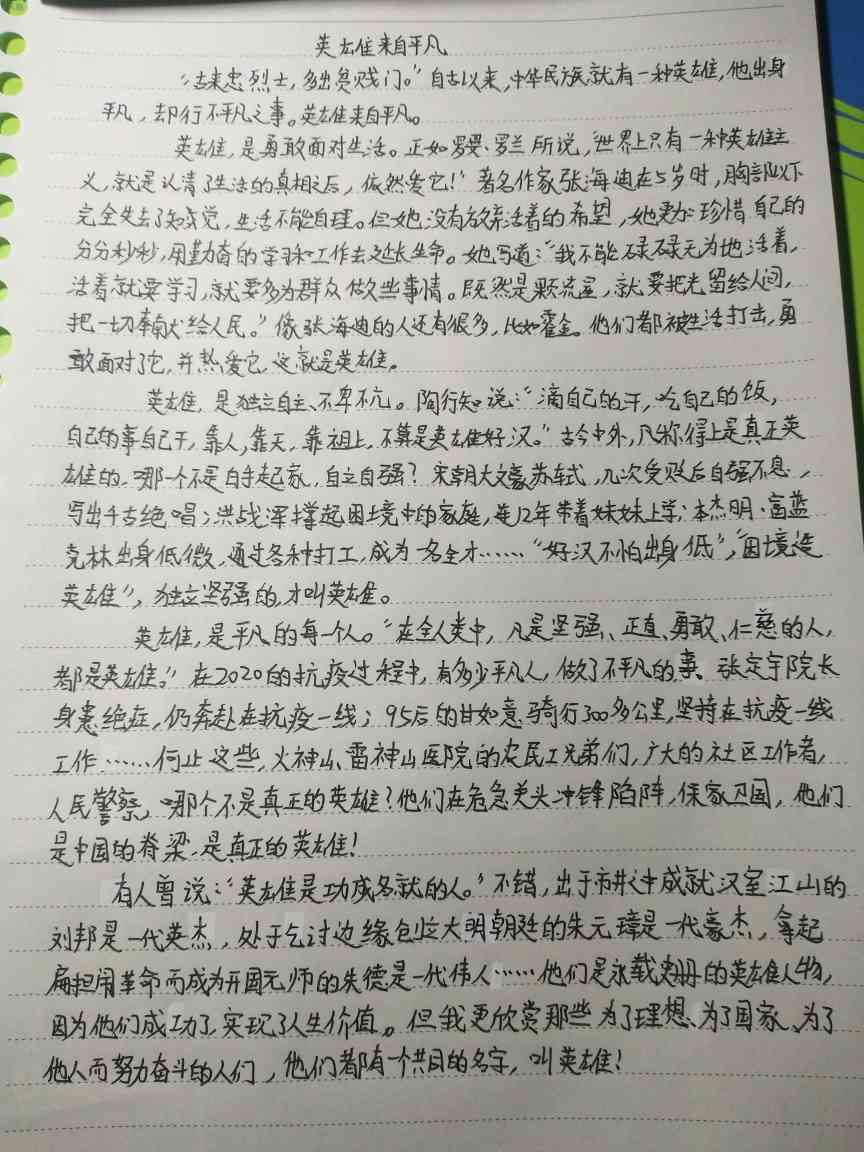 英雄来自平凡
“古来忠烈士,多出贫贱门。”自古以来,中华民族就有一种英雄,他出身
平凡,却行不平凡之事。英雄来自平凡。
英雄,是勇敢面对生活。正如罗曼·罗兰所说,“世界上只有一种英雄主
义,就是认清了生活的真相之后,依然爱它!”著名作家张海迪在5岁时,胸部以下
完全失去了知觉,生活不能自理。但她没有放弃活着的希望,她更加珍惜自己的
分分秒秒,用勤奋的学习和工作去延长生命。她写道:“我不能碌碌无为地活着,
活着就要学习,就要多为群众做些事情。既然是颗流星,就要把光留给人间,
把一切奉献给人民。”像张海迪的人还有很多,比如霍金。他们都被生活打击,勇
敢面对了它,并热爱它,这就是英雄。
英雄,是独立自主、不卑不亢。陶行知说:“滴自己的汗,吃自己的饭,
自己的事自己干,靠人,靠天,靠祖上,不算是英雄好汉。”古今中外,凡称得上是真正英
雄的,哪一个不是白手起家,自立自强?宋朝大文豪苏轼,几次受贬后自强不息,
写出千古绝唱;洪战浑撑起困境中的家庭,连12年带着妹妹上学;本杰明·富蓝
克林出身低微,通过各种打工,成为一名全才……“好汉不怕出身低”,“困境造
英雄”,独立坚强的,才叫英雄。
英雄,是平凡的每个人。“在全人类中,凡是坚强、正直、勇敢、仁慈的人,
都是英雄。”在2020的抗疫过程中,有多少平凡人,做了不平凡的事、张定宇院长
身患绝症,仍奔赴在抗疫一线;95后的甘如意骑行300多公里,坚持在抗疫一线
工作……何止这些,火神山、雷神山医院的农民工兄弟们,广大的社区工作者,
人民警察,哪个不是真正的英雄?他们在危急关头冲锋陷阵,保家卫国,他们
是中国的脊梁,是真正的英雄!
有人曾说:“英雄是功成名就的人。”不错,出于市井之中成就汉室江山的
刘邦是一代英杰,处于乞讨边缘创立大明朝廷的朱元璋是一代豪杰,拿起
扁担闹革命而成为开国元帅的朱德是一代伟人……他们是永载史册的英雄人物,
因为他们成功了,实现了人生价值。但我更欣赏那些为了理想、为了国家、为了
他人而努力奋斗的人们,他们都有一个共同的名字,叫英雄!